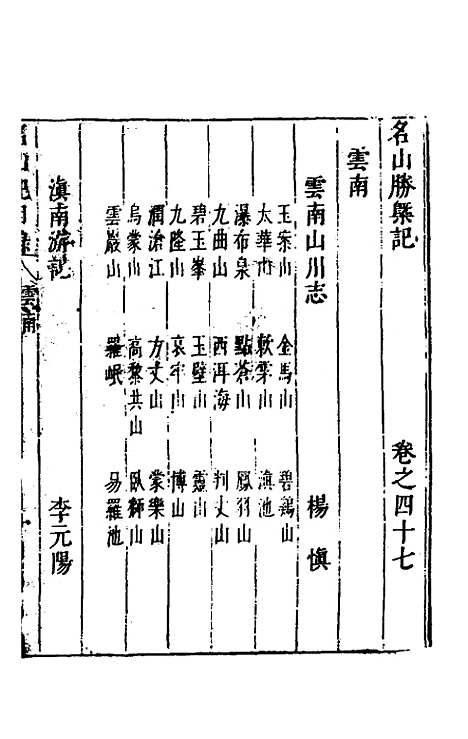 名山勝槩記 卷之四十七
雲南
雲南山川志 楊愼
玉案山 金馬山 碧鷄山
太華山 軟雲山 滇池
瀑布泉 點蒼山 鳳羽山
九曲山 西洱海 判丈山
碧玉峯 玉壁山 靈山
九隆山 哀牢山 博山
瀾滄江 方丈山 蒙樂山
烏蒙山 高黎共山 臥獅山
雲巖山 羅岷 易羅池
滇南游記 李元陽
雲南